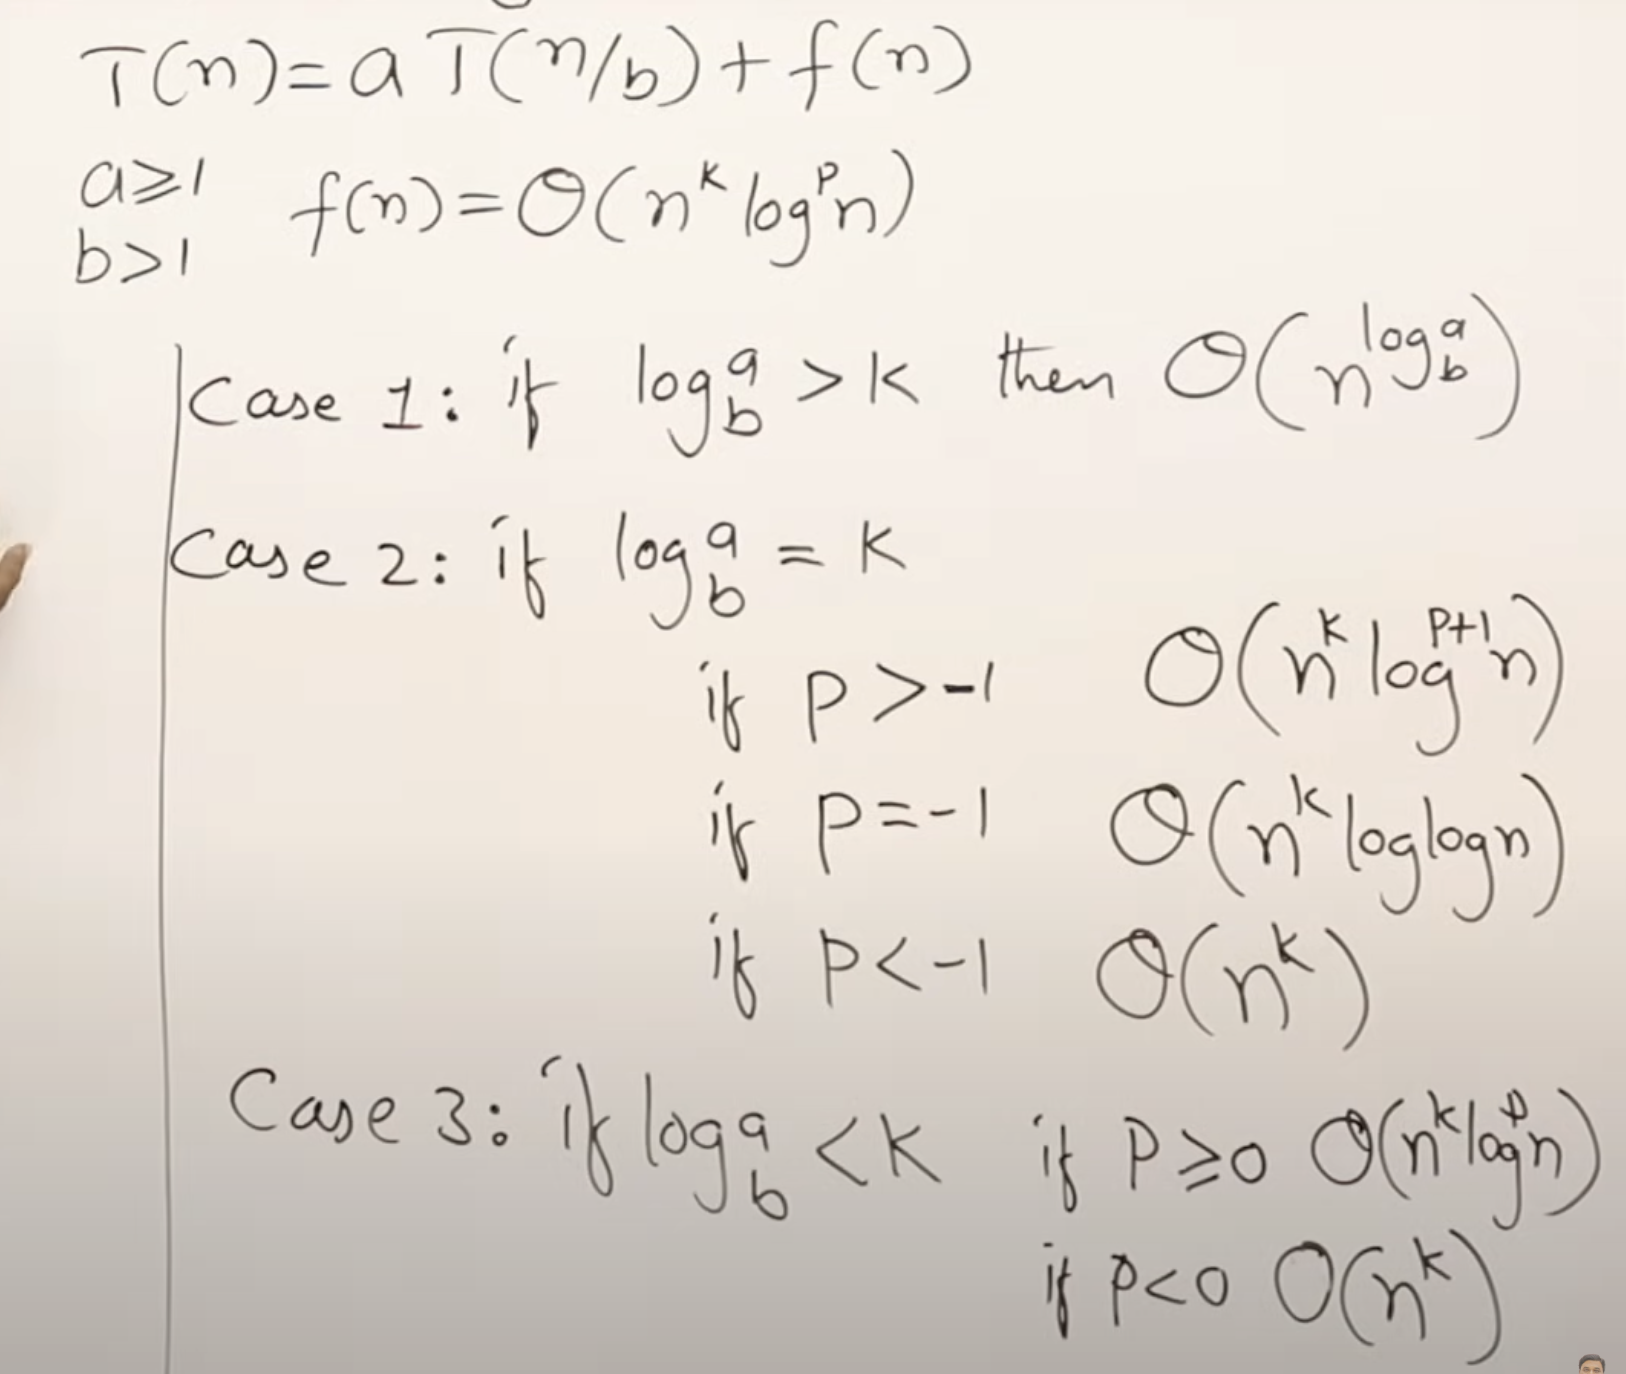 T(n) = a T(n/b) + f(n)
a ≥ 1
b > 1
f(n) = O(n^k log^p n)
Case 1: if log_b^a > k then O(n^{log_b^a})
Case 2: if log_b^a = k
if p > -1 O(n^k log^{p+1} n)
if p = -1 O(n^k log log n)
if p < -1 O(n^k)
Case 3: if log_b^a < k if p ≥ 0 O(n^k log^p n)
if p < 0 O(n^k)